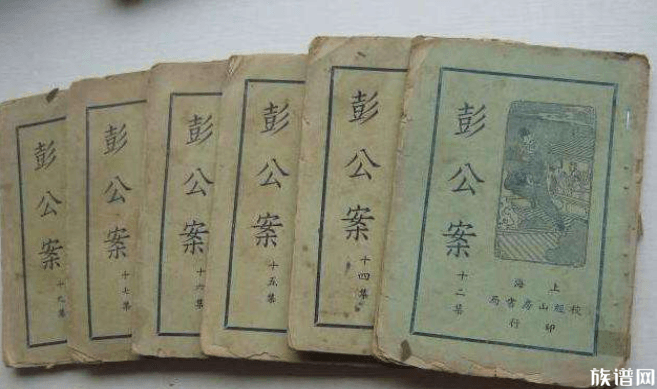 彭公案
十九集
彭公案
十七集
彭公案
十六集
彭公案
十五集
彭公案
十四集
彭公案
十二集
上海
校經山房書局
印行
族谱网